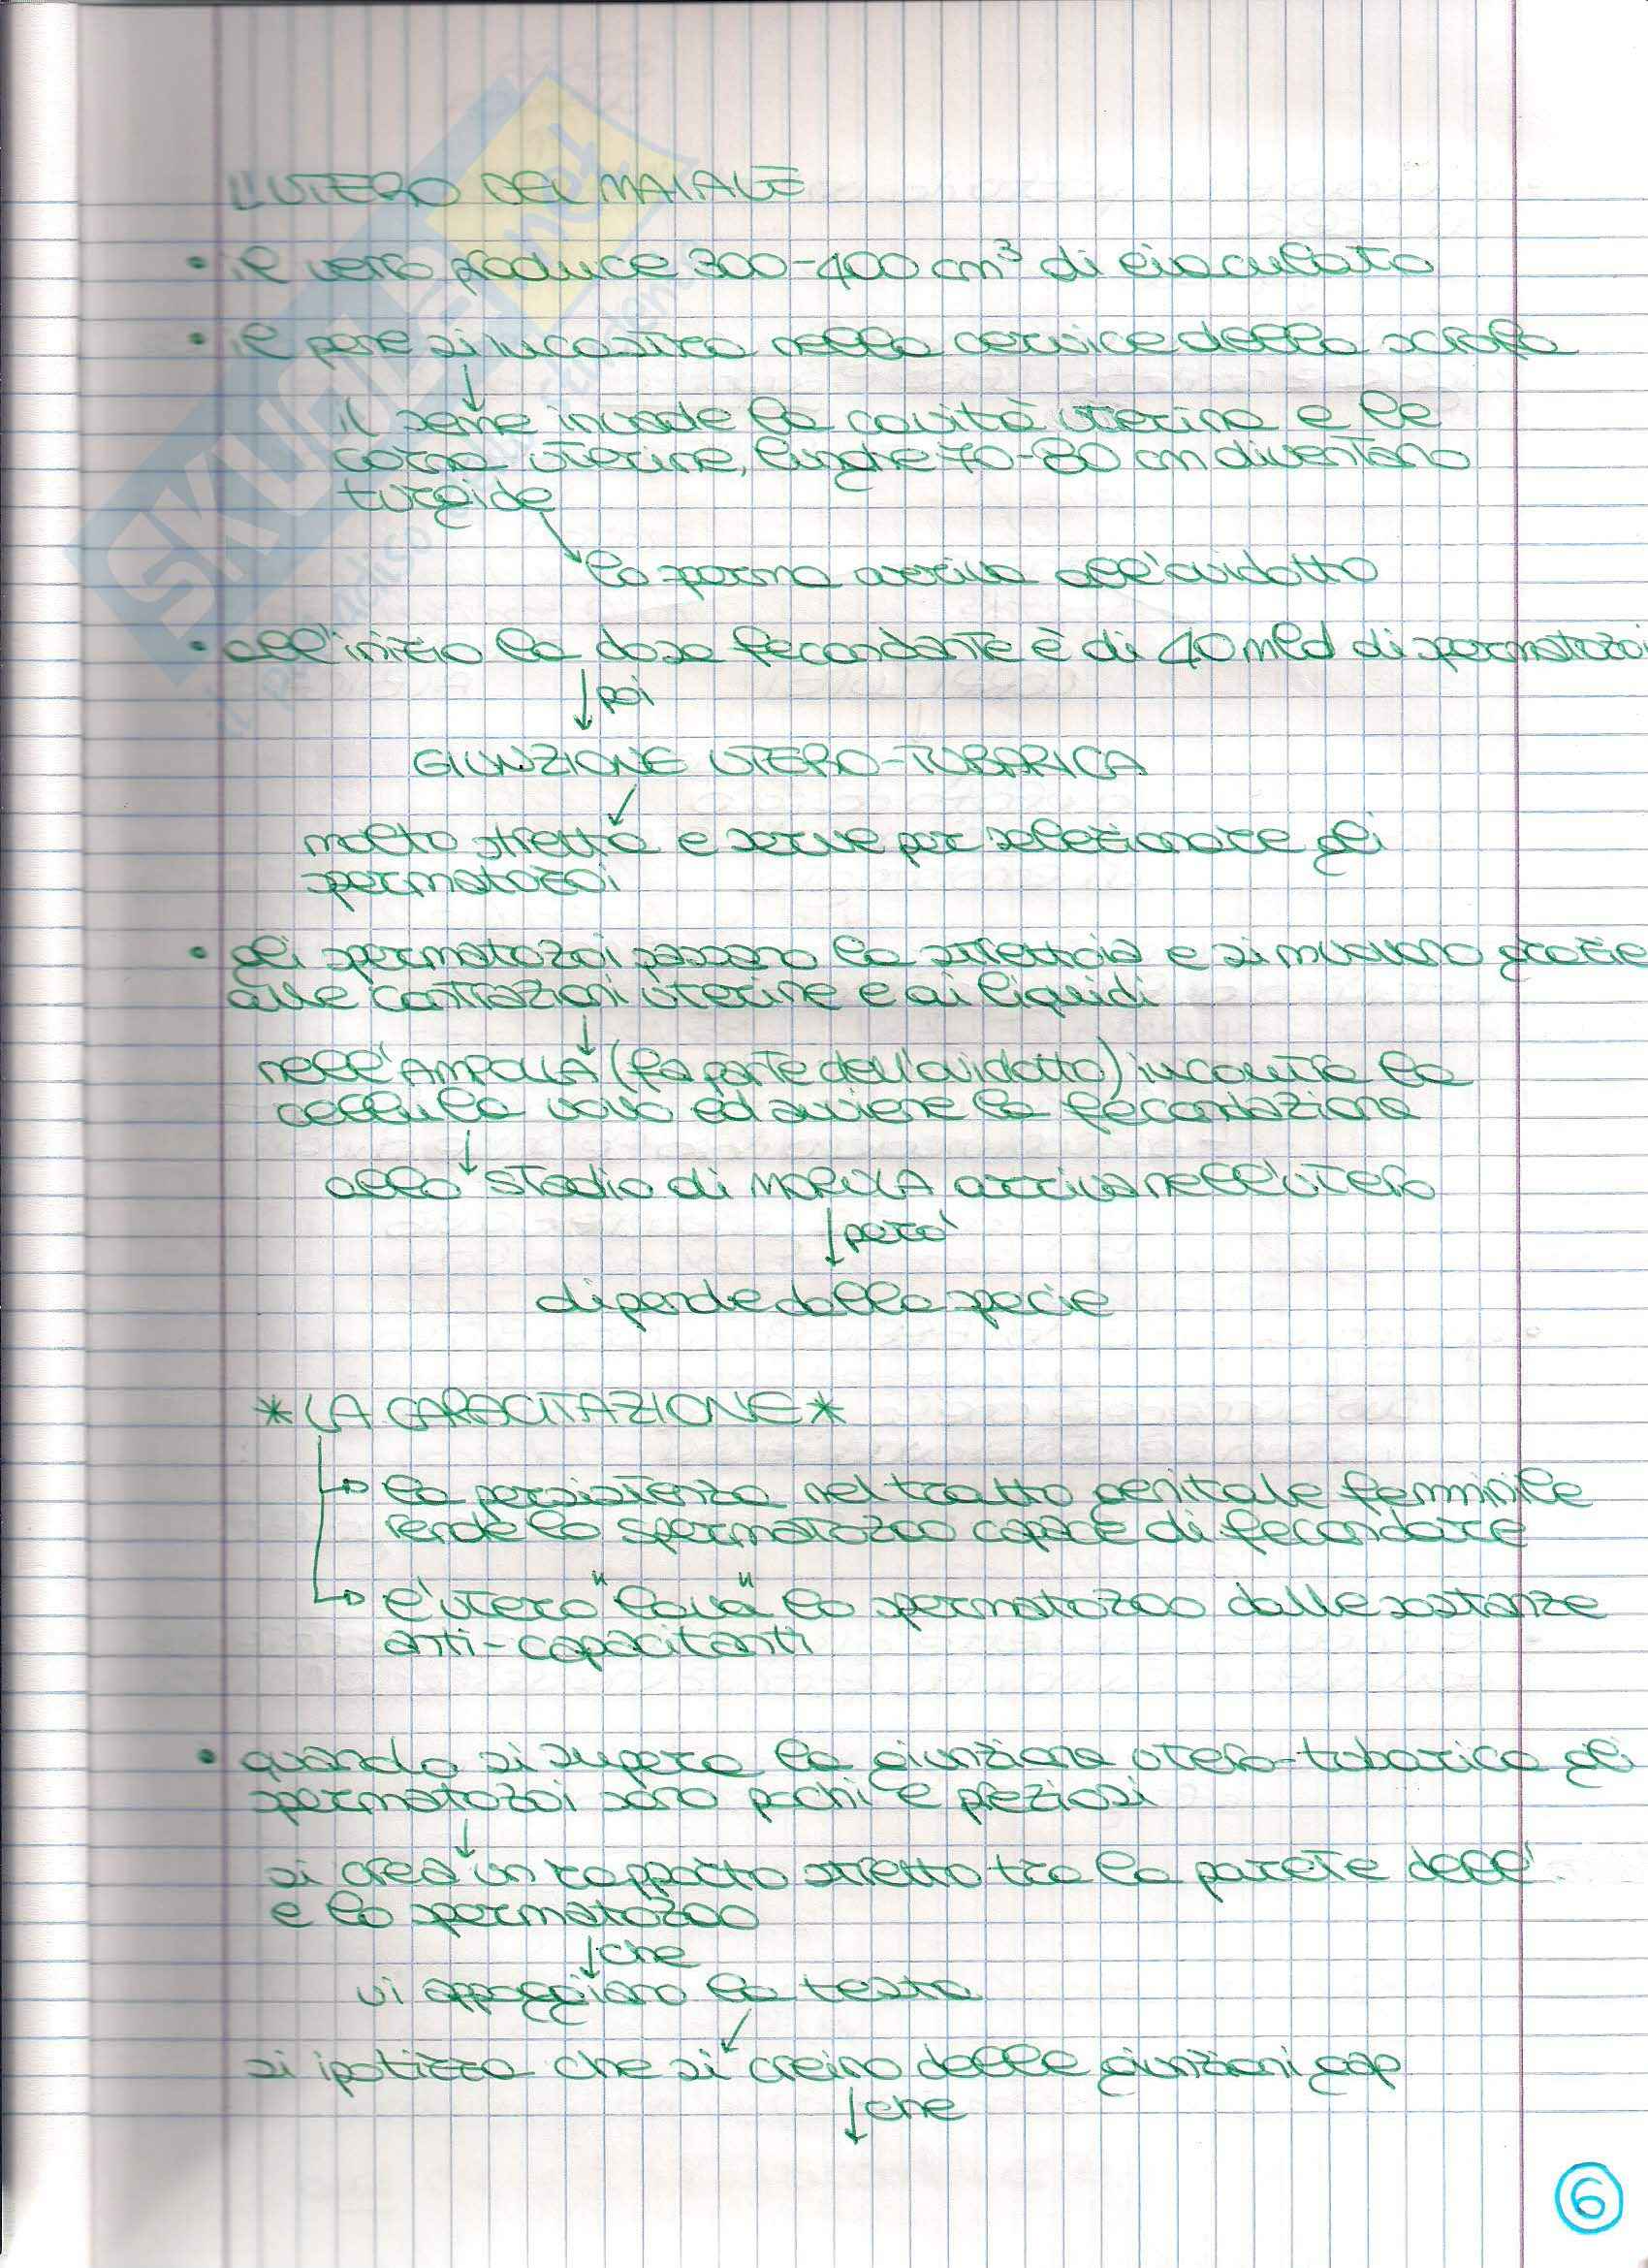 L'UTERO DEL MAIALE
• il verro produce 300-400 cm³ di eiaculato
• il pene si incastra nella cervice della scrofa
↓
il seme invade la cavità uterina e le
corna uterine, lunghe 70-80 cm diventano
turgide
↓
lo sperma arriva all'ovidotto
• all'inizio la dose fecondante è di 40 mld di spermatozoi
↓ poi
GIUNZIONE UTERO-TUBARICA
↓
molto stretta e serve per selezionare gli
spermatozoi
• gli spermatozoi passano la strettoia e si muovono grazie
alle contrazioni uterine e ai liquidi
↓
nell'AMPOLLA (fa parte dell'ovidotto) incontra la
cellula uovo ed avviene la fecondazione
↓
allo stadio di MORULA arriva nell'utero
↓ però
dipende dalla specie
*LA CAPACITAZIONE*
→ la persistenza nel tratto genitale femminile
rende lo spermatozoo capace di fecondare
→ l'utero "lava" lo spermatozoo dalle sostanze
anti-capacitanti
• quando si supera la giunzione utero-tubarica gli
spermatozoi sono pochi e preziosi
↓
si crea un rapporto stretto tra la parete dell'
e lo spermatozoo
↓ che
vi appoggiano la testa
↓
si ipotizza che si creino delle giunzioni gap
↓ che
6
SKUOLA.net
il paradiso dello studente